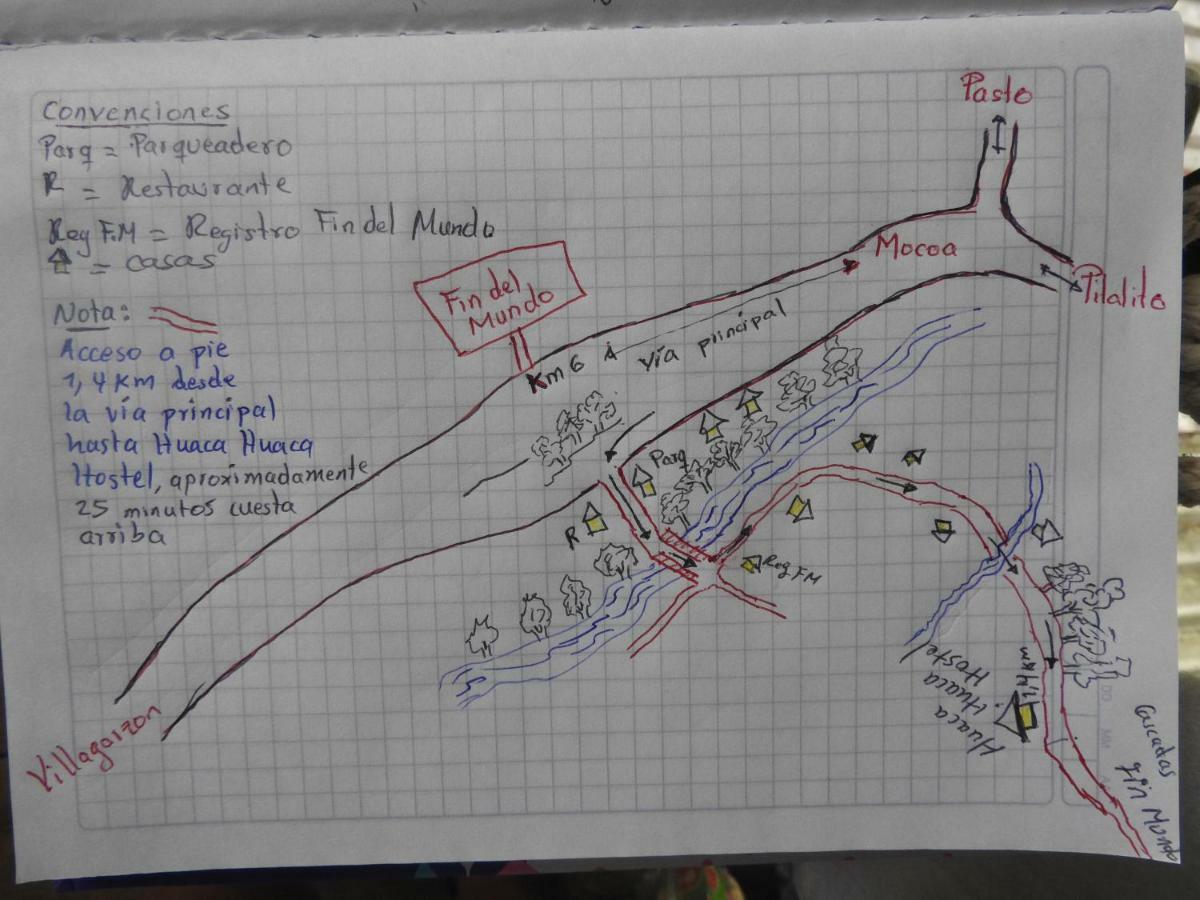 Convenciones
Parq = Parqueadero
R = Restaurante
Reg F.M = Registro Fin del Mundo
= casas
Nota:
Acceso a pie
1,4 Km desde
la vía principal
hasta Huaca Huaca
Hostel, aproximadamente
25 minutos cuesta
arriba
Fin del
Mundo
Km 6
vía principal
Mocoa
Pasto
Pitalito
Villagarzon
Parq
R
Reg F.M
1,4 km
Huaca
Huaca
Hostel
Cascadas
Fin Mundo